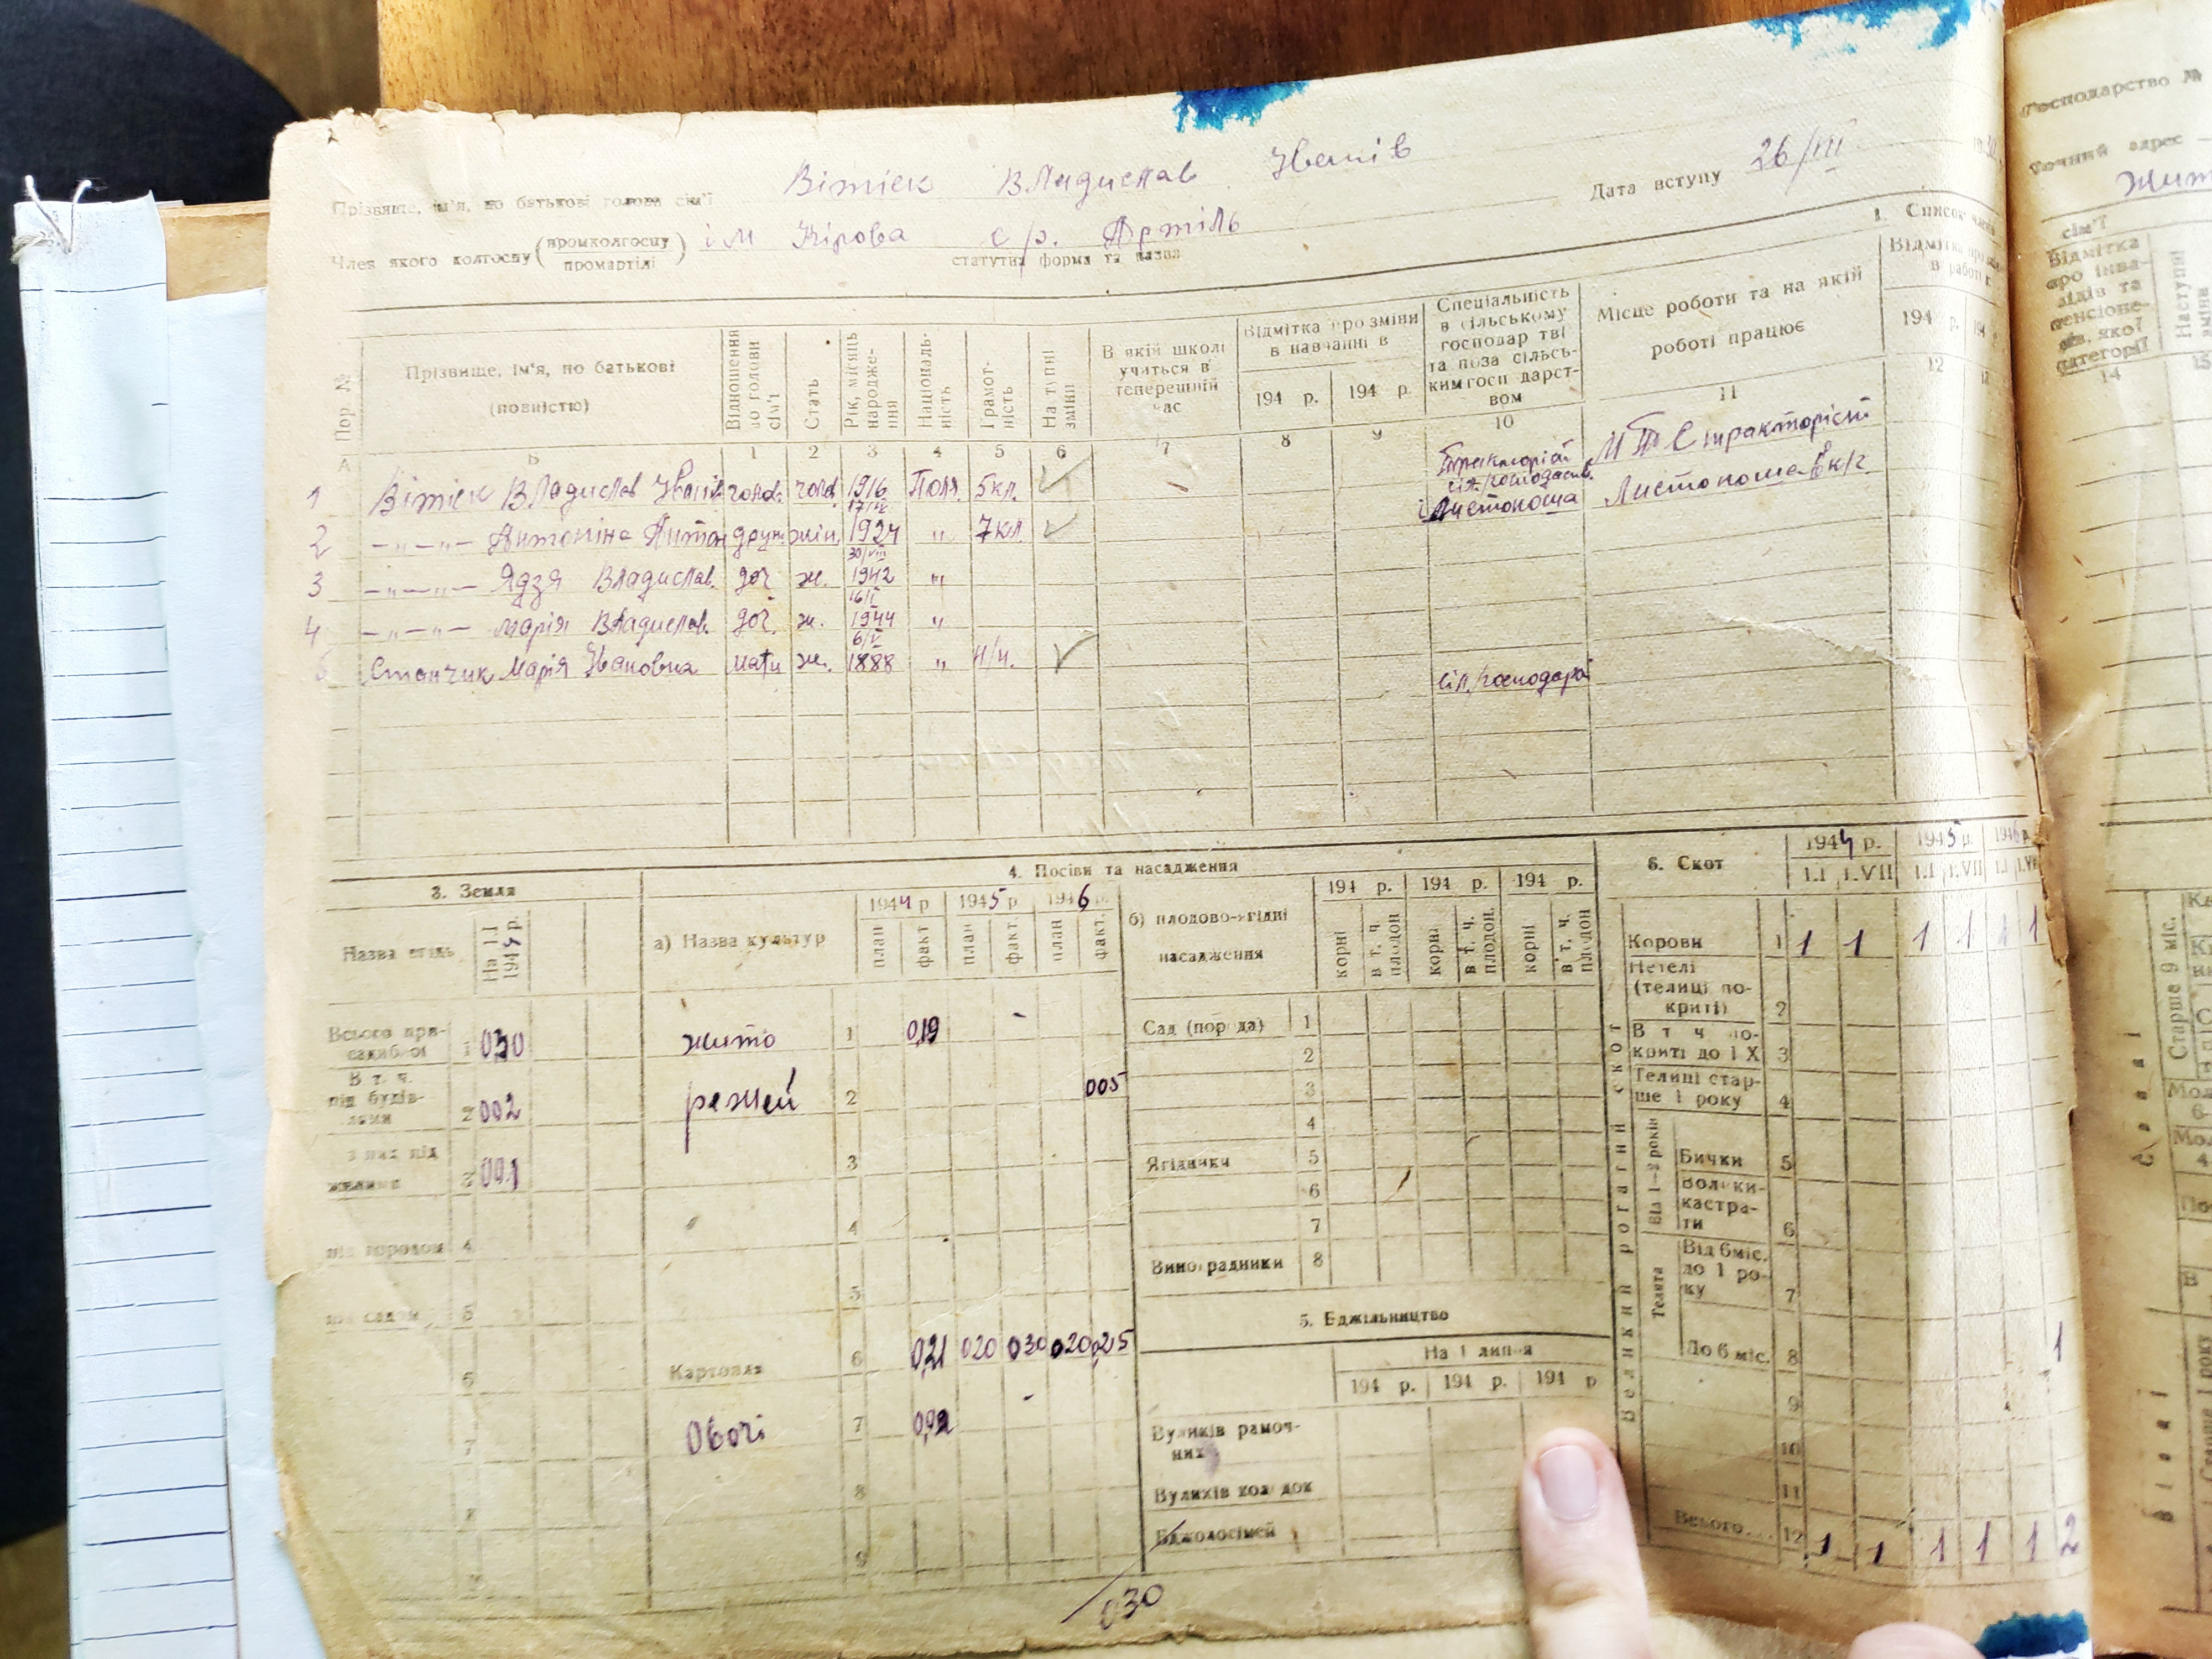 Прізвище, ім'я, по батькові голови сім'ї Вітієк Владислав Іванів
Дата вступу 26/III
Член якого колгоспу (промколгоспу / промартілі) ім Кірова с/г. Артіль
статутна форма та назва
1. Список членів
Пор. №
Прізвище, ім'я, по батькові (повністю)
Відношення до голови сім'ї
Стать
Рік, місяць народження
Національність
Грамотність
Наступні зміни
В якій школі учиться в теперешній час
Відмітка про зміни в навчанні в
194 р. 194 р.
Спеціальність в сільському господарстві та поза сільським господарством
Місце роботи та на якій роботі працює
Відмітка про зміни в роботі
194 р. 194
А Б 1 2 3 4 5 6 7 8 9 10 11 12
1 Вітієк Владислав Іванів голов. чолов. 1916 Поля. 5кл. МТС тракторіст
2 —„—„— Антоніна Антон друж. жін. 17/IV 1924 „ 7кл. Листоноша Листоноша в к/г
3 —„—„— Ядзя Владислав. доч ж. 30/VIII 1942 „
4 —„—„— Марія Владислав. доч. ж. 1944 „
5 Стопчик Марія Івановна мати ж. 6/V 1888 „ н/п. сіл/господар
3. Земля
Назва угідь
На 1.I 1944 р.
Всього присадибної 1 030
В т. ч. під будівлями 2 002
з них під 3 001
під городом 4
під садом 5
6
7
8
4. Посіви та насадження
а) Назва культур
1944 р 1945 р 1946 р.
план факт план факт. план факт.
жито 1 0,19 -
режей 2 005
3
4
5
Картопля 6 0,21 020 030 020 0,25
Овочі 7 0,02 -
8
9
030
б) плодово-ягідні насадження
194 р. 194 р. 194 р.
корні в т. ч. плодон. корні в т. ч. плодон. корні в т. ч. плодон
Сад (порода) 1
2
3
4
Ягідники 5
6
7
Виноградники 8
5. Бджільництво
На 1 липня
194 р. 194 р. 194 р
Вуликів рамочних
Вуликів колодок
Бджолосімей
6. Скот
1944 р. 1945 р. 1946 р.
1.I 1.VII 1.I 1.VII 1.I 1.VII
Великий рогатий скот
Корови 1 1 1 1 1 1 1
Нетелі (телиці покриті) 2
В т ч покриті до 1 X 3
Телиці старше 1 року 4
Від 1—2 років
Бички 5
Волики-кастрати 6
Телята
Від 6 міс. до 1 року 7
До 6 міс. 8 1
9
10
11
Всього... 12 1 1 1 1 1 2
Господарство №
Точний адрес
сім'ї
Відмітка про інвалідів та пенсіонерів, якої категорії
Наступні зміни
14 15
Старше 9 міс.